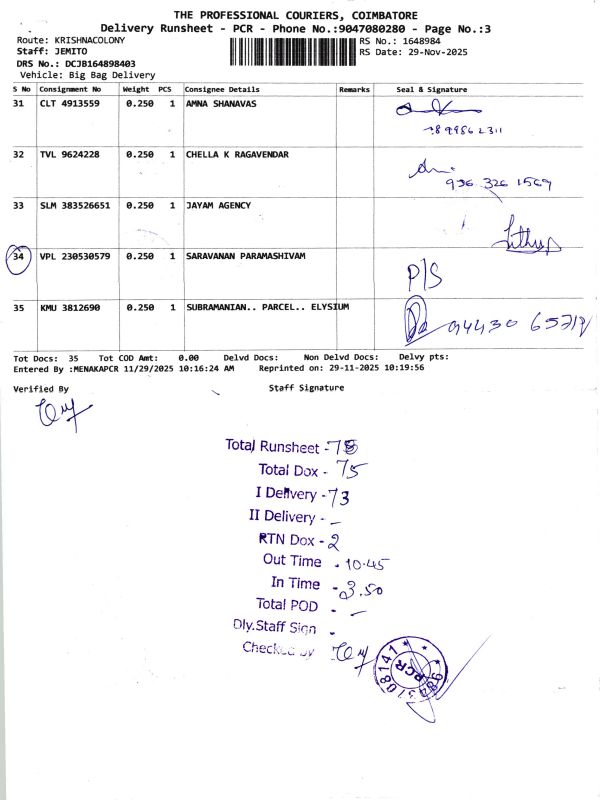 THE PROFESSIONAL COURIERS, COIMBATORE
Delivery Runsheet - PCR - Phone No.:9047080280 - Page No.:3
Route: KRISHNACOLONY
RS No.: 1648984
Staff: JEMITO
RS Date: 29-Nov-2025
DRS No.: DCJB164898403
Vehicle: Big Bag Delivery
S No Consignment No Weight PCS Consignee Details Remarks Seal & Signature
31 CLT 4913559 0.250 1 AMNA SHANAVAS
32 TVL 9624228 0.250 1 CHELLA K RAGAVENDAR
936 326 1569
33 SLM 383526651 0.250 1 JAYAM AGENCY
34 VPL 230530579 0.250 1 SARAVANAN PARAMASHIVAM
P/S
35 KMU 3812690 0.250 1 SUBRAMANIAN.. PARCEL.. ELYSIUM
94430
Tot Docs: 35 Tot COD Amt: 0.00 Delvd Docs: Non Delvd Docs: Delvy pts:
Entered By :MENAKAPCR 11/29/2025 10:16:24 AM Reprinted on: 29-11-2025 10:19:56
Verified By Staff Signature
Total Runsheet -
Total Dox - 75
I Delivery - 73
II Delivery - -
RTN Dox - 2
Out Time - 10.45
In Time - 3.50
Total POD - -
Dly.Staff Sign -
Checked by
PCR